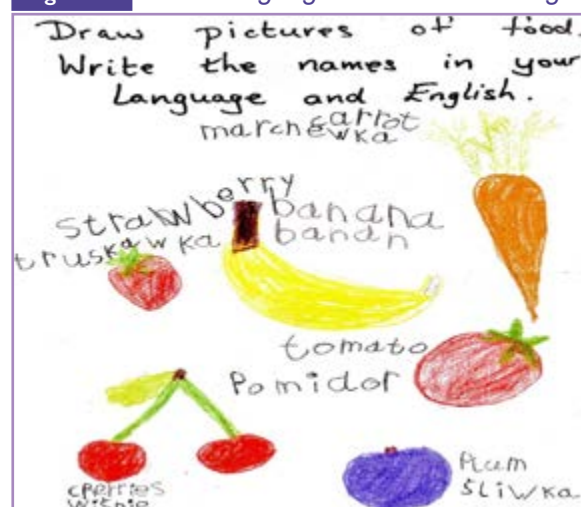 Draw pictures of food.
Write the names in your
Language and English.
carrot
marchewka
strawberry
truskawka
banana
banan
tomato
Pomidor
cherries
wiśnie
Plum
śliwka